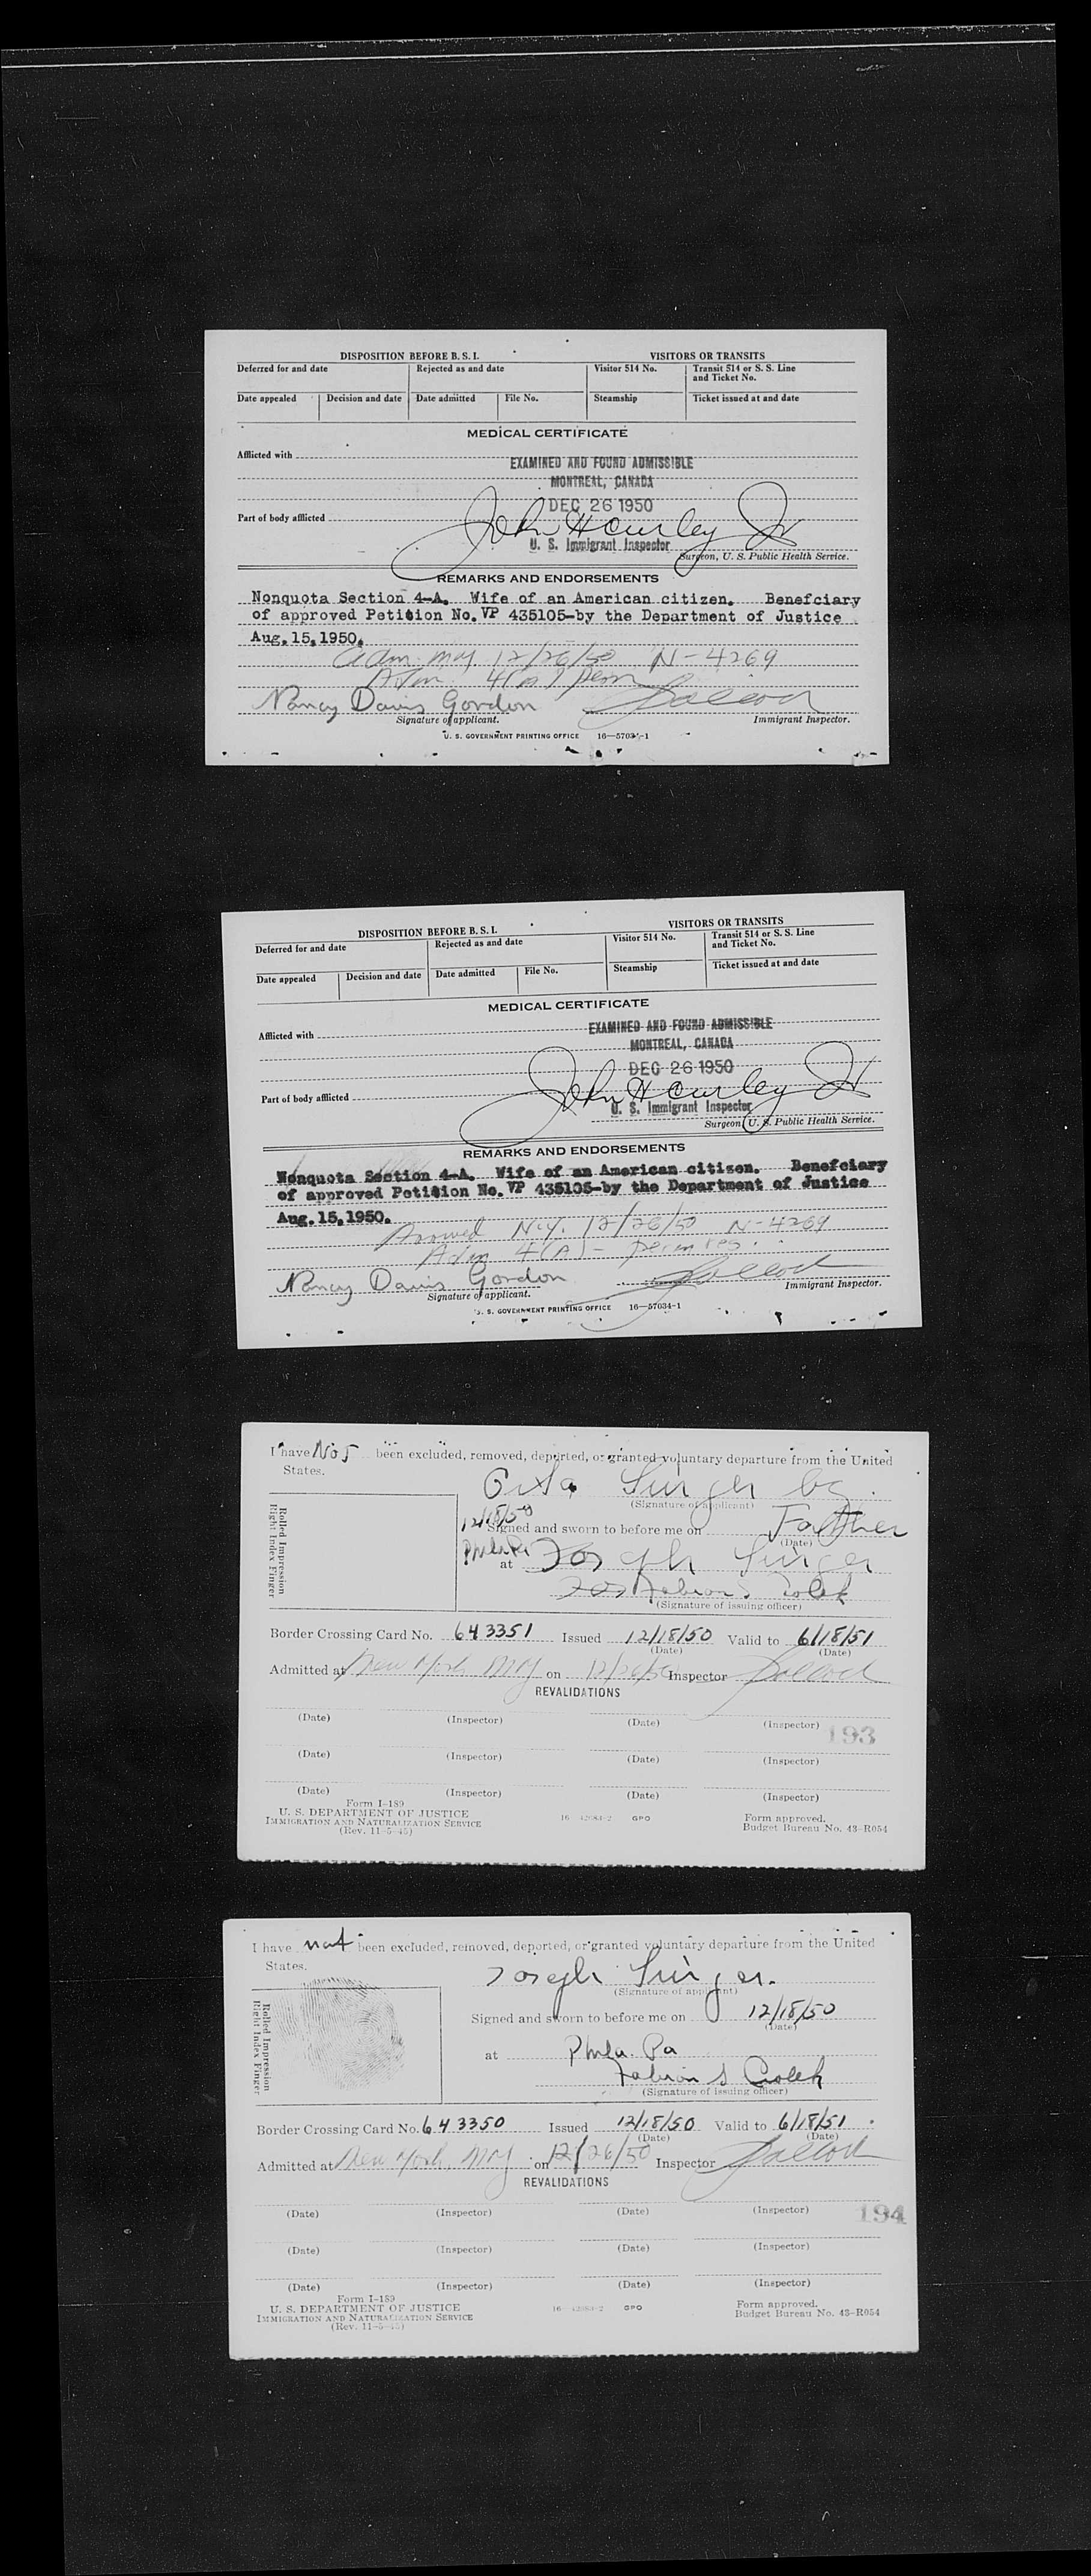 DISPOSITION BEFORE B. S. I. VISITORS OR TRANSITS
Deferred for and date Rejected as and date Visitor 514 No. Transit 514 or S. S. Line and Ticket No.
Date appealed Decision and date Date admitted File No. Steamship Ticket issued at and date
MEDICAL CERTIFICATE
Afflicted with
EXAMINED AND FOUND ADMISSIBLE
MONTREAL, CANADA
DEC 26 1950
Part of body afflicted
John H Curley Jr
U. S. Immigrant Inspector
Surgeon, U. S. Public Health Service.
REMARKS AND ENDORSEMENTS
Nonquota Section 4-A. Wife of an American citizen. Benefciary
of approved Petition No. VP 435105-by the Department of Justice
Aug. 15, 1950.
Adm 12/26/50 N-4269
Adm 4(A) perm
Nancy Davis Gordon
Signature of applicant. Immigrant Inspector.
U. S. GOVERNMENT PRINTING OFFICE 16—57034-1
DISPOSITION BEFORE B. S. I. VISITORS OR TRANSITS
Deferred for and date Rejected as and date Visitor 514 No. Transit 514 or S. S. Line and Ticket No.
Date appealed Decision and date Date admitted File No. Steamship Ticket issued at and date
MEDICAL CERTIFICATE
Afflicted with
EXAMINED AND FOUND ADMISSIBLE
MONTREAL, CANADA
DEC 26 1950
Part of body afflicted
John H Curley Jr
U. S. Immigrant Inspector
Surgeon, U. S. Public Health Service.
REMARKS AND ENDORSEMENTS
Nonquota Section 4-A. Wife of an American citizen. Benefciary
of approved Petition No. VP 435105-by the Department of Justice
Aug. 15, 1950.
Arrived N.Y. 12/26/50 N-4269
Adm 4(A) - perm res.
Nancy Davis Gordon
Signature of applicant. Immigrant Inspector.
U. S. GOVERNMENT PRINTING OFFICE 16—57034-1
I have Not been excluded, removed, deported, or granted voluntary departure from the United
States.
Singer by
(Signature of applicant)
12/18/50
Father
Signed and sworn to before me on
(Date)
Phila Pa
at Joseph Singer
(Signature of issuing officer)
Rolled Impression
Right Index Finger
Border Crossing Card No. 643351 Issued 12/18/50 Valid to 6/18/51
(Date) (Date)
Admitted at New York NY on 12/26/50 Inspector
REVALIDATIONS
(Date) (Inspector) (Date) (Inspector)
193
(Date) (Inspector) (Date) (Inspector)
(Date) (Inspector) (Date) (Inspector)
Form I-189
U. S. DEPARTMENT OF JUSTICE
IMMIGRATION AND NATURALIZATION SERVICE
(Rev. 11-5-45)
16—42984-2 GPO
Form approved.
Budget Bureau No. 43-R054
I have not been excluded, removed, deported, or granted voluntary departure from the United
States.
Joseph Singer.
(Signature of applicant)
Signed and sworn to before me on 12/18/50
(Date)
at Phila. Pa
(Signature of issuing officer)
Rolled Impression
Right Index Finger
Border Crossing Card No. 643350 Issued 12/18/50 Valid to 6/18/51
(Date) (Date)
Admitted at New York, NY on 12/26/50 Inspector
REVALIDATIONS
(Date) (Inspector) (Date) (Inspector)
194
(Date) (Inspector) (Date) (Inspector)
(Date) (Inspector) (Date) (Inspector)
Form I-189
U. S. DEPARTMENT OF JUSTICE
IMMIGRATION AND NATURALIZATION SERVICE
(Rev. 11-5-45)
16—42984-2 GPO
Form approved.
Budget Bureau No. 43-R054